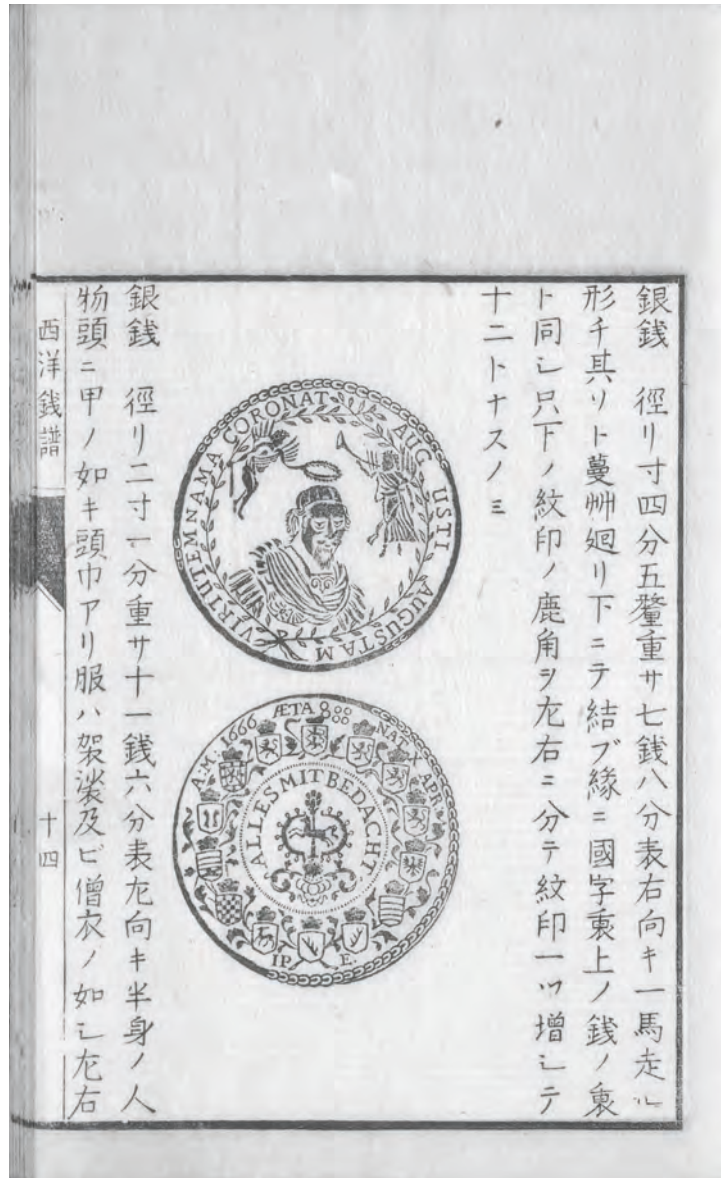 銀銭　徑リ寸四分五釐重サ七銭八分表右向キ一馬走ル
形チ其リト蔓艸廻リ下ニテ結ブ緣ニ國字裏上ノ銭ノ裏
ト同シ只下ノ紋印ノ鹿角ヲ左右ニ分テ紋印一ツ増シテ
十二トナスノミ
VIRTUTEMNAMA CORONAT AUG USTI AUGUSTAM
A.M. 1666 ÆTA 8 NAT. X APR.
ALLES MIT BEDACHT.
IP. E.
銀銭　徑リ二寸一分重サ十一銭六分表左向キ半身ノ人
物頭ニ甲ノ如キ頭巾アリ服ハ袈裟及ビ僧衣ノ如シ左右
西洋銭譜
十四